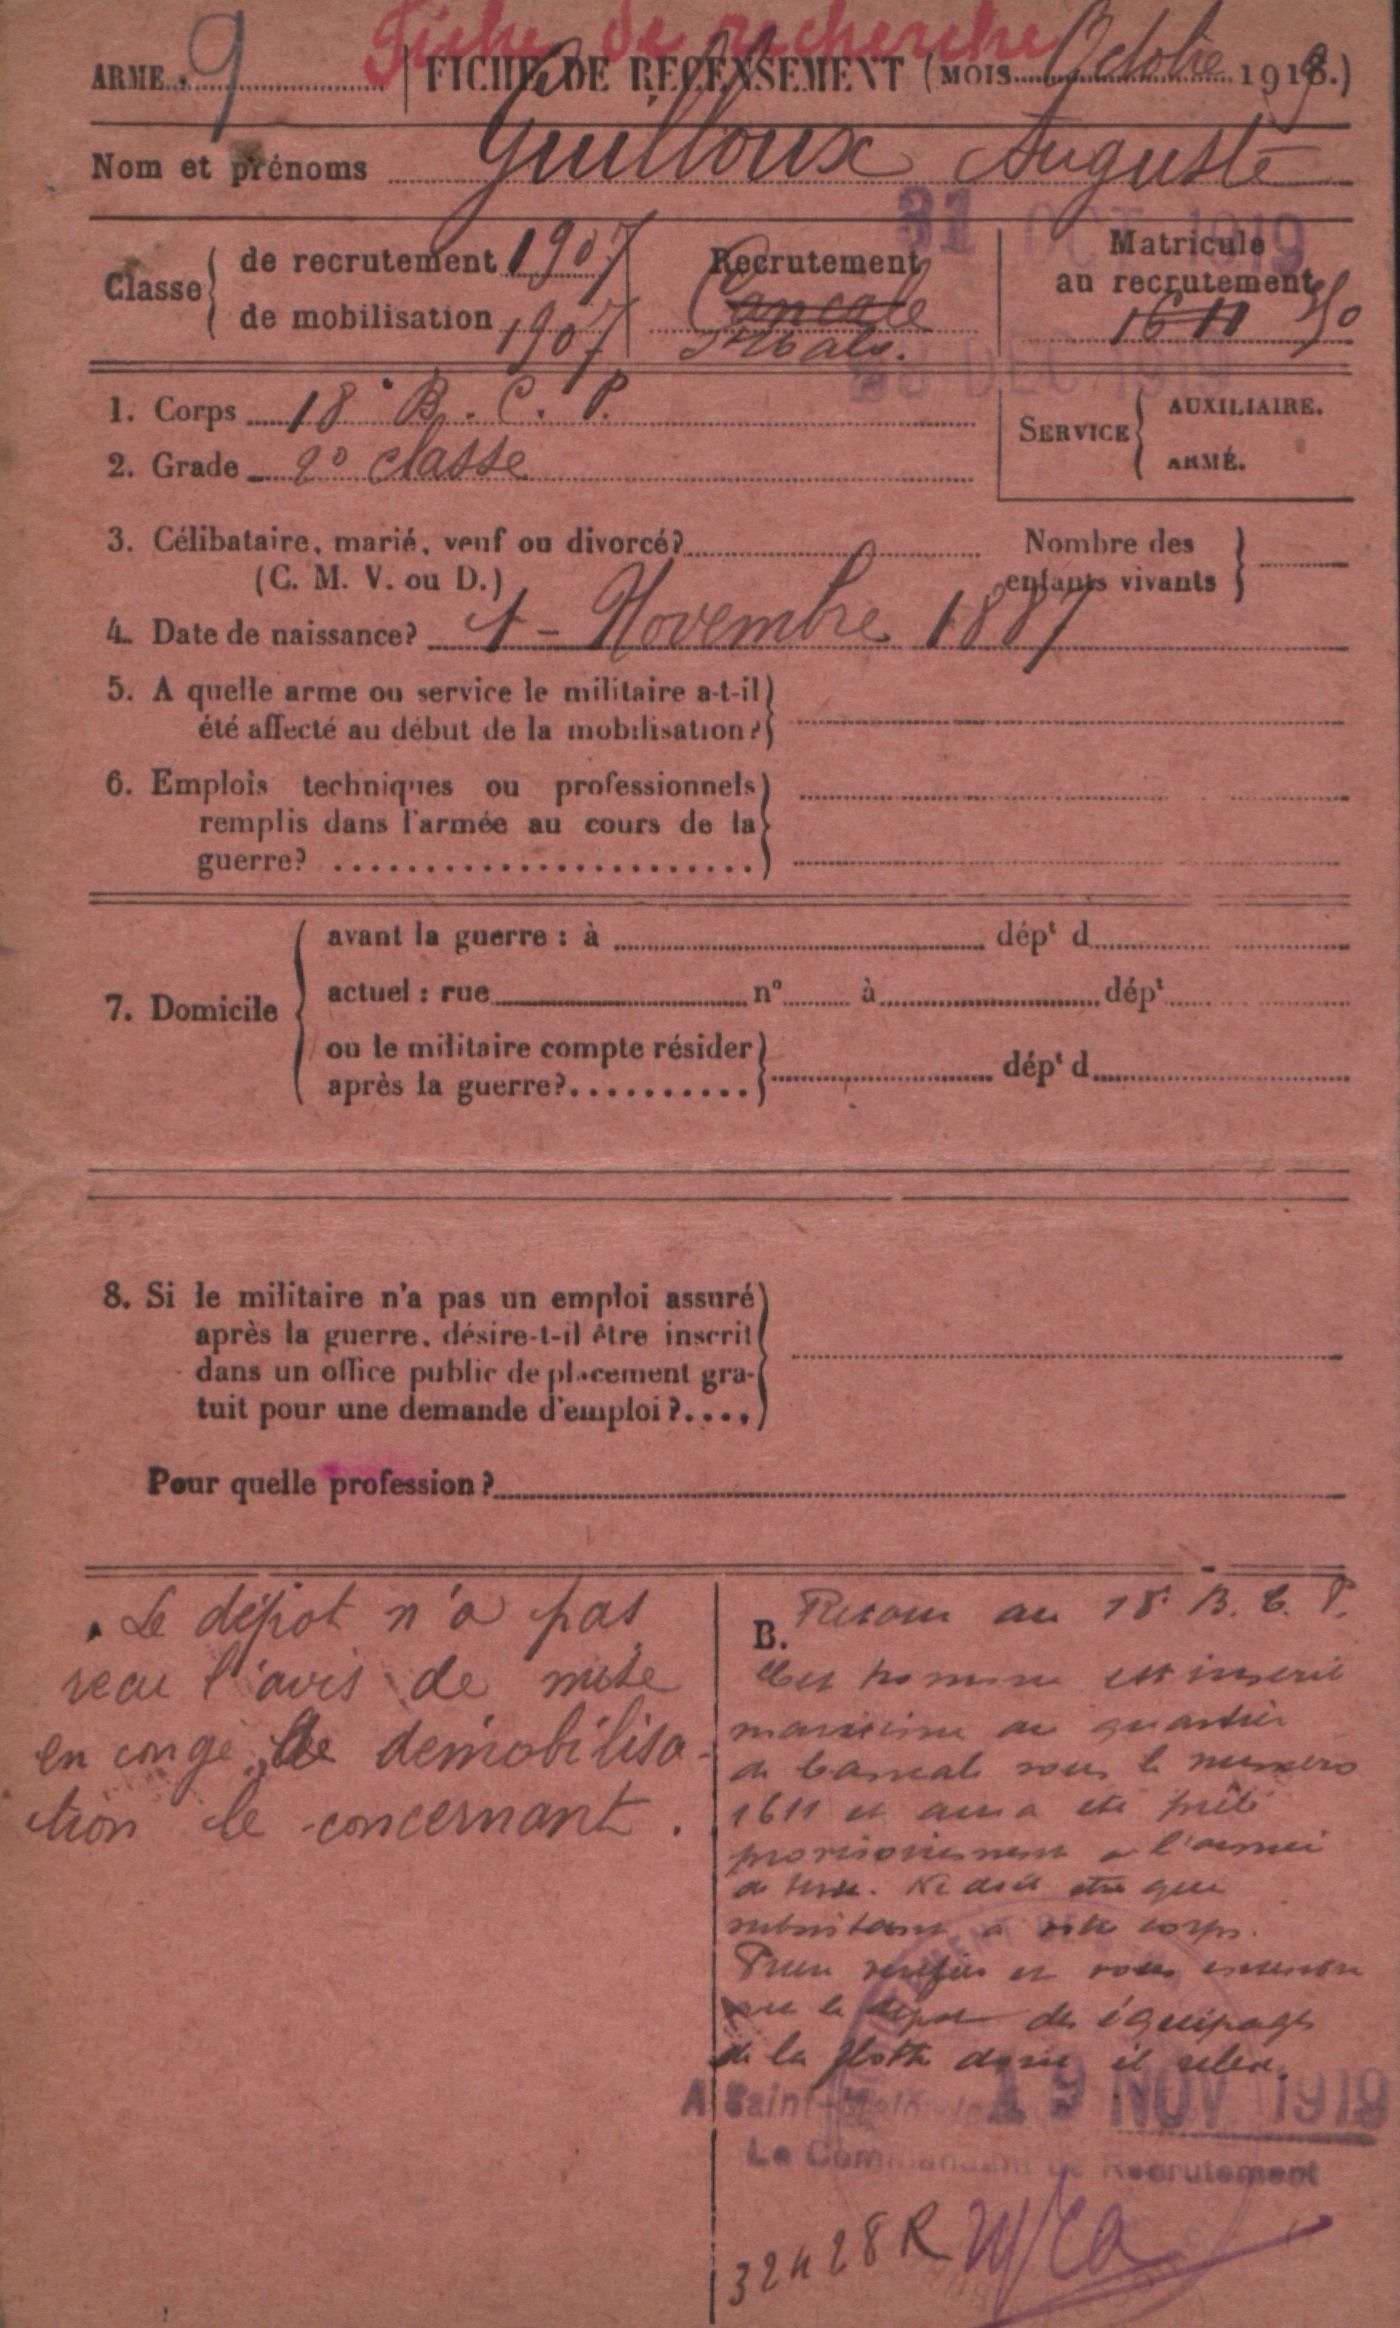 Fiche de recherche
ARME : 9 FICHE DE RECENSEMENT (MOIS Octobre 1919.)
Nom et prénoms Guilloux Auguste
31 OCT 1919
Classe de recrutement 1907 Recrutement Cancale St Malo. Matricule au recrutement 1611
de mobilisation 1907
DEC 1919
1. Corps 18e B. C. P.
SERVICE AUXILIAIRE.
ARMÉ.
2. Grade 2e classe
3. Célibataire, marié, veuf ou divorcé? Nombre des
(C. M. V. ou D.) enfants vivants
4. Date de naissance? 1 - Novembre 1887
5. A quelle arme ou service le militaire a-t-il
été affecté au début de la mobilisation?
6. Emplois techniques ou professionnels
remplis dans l'armée au cours de la
guerre?
7. Domicile
avant la guerre : à dépt d
actuel : rue n° à dépt
ou le militaire compte résider
après la guerre? dépt d
8. Si le militaire n'a pas un emploi assuré
après la guerre, désire-t-il être inscrit
dans un office public de placement gra-
tuit pour une demande d'emploi?
Pour quelle profession?
Le dépot n'a pas
recu l'avis de mise
en congé de démobilisa-
tion le concernant.
B. Retour au 18e B. C. P.
Cet homme est inscrit
maritime au quartier
de Cancale sous le numero
1611 et aura été prêté
provisoirement a l'armée
de terre. Ne doit être que
subsistant a votre corps.
Prière vérifier et vous entendre
avec le dépôt des équipages
de la flotte dont il relève.
A Saint-Malo, le 19 NOV 1919
Le Commandant de Recrutement
32428R